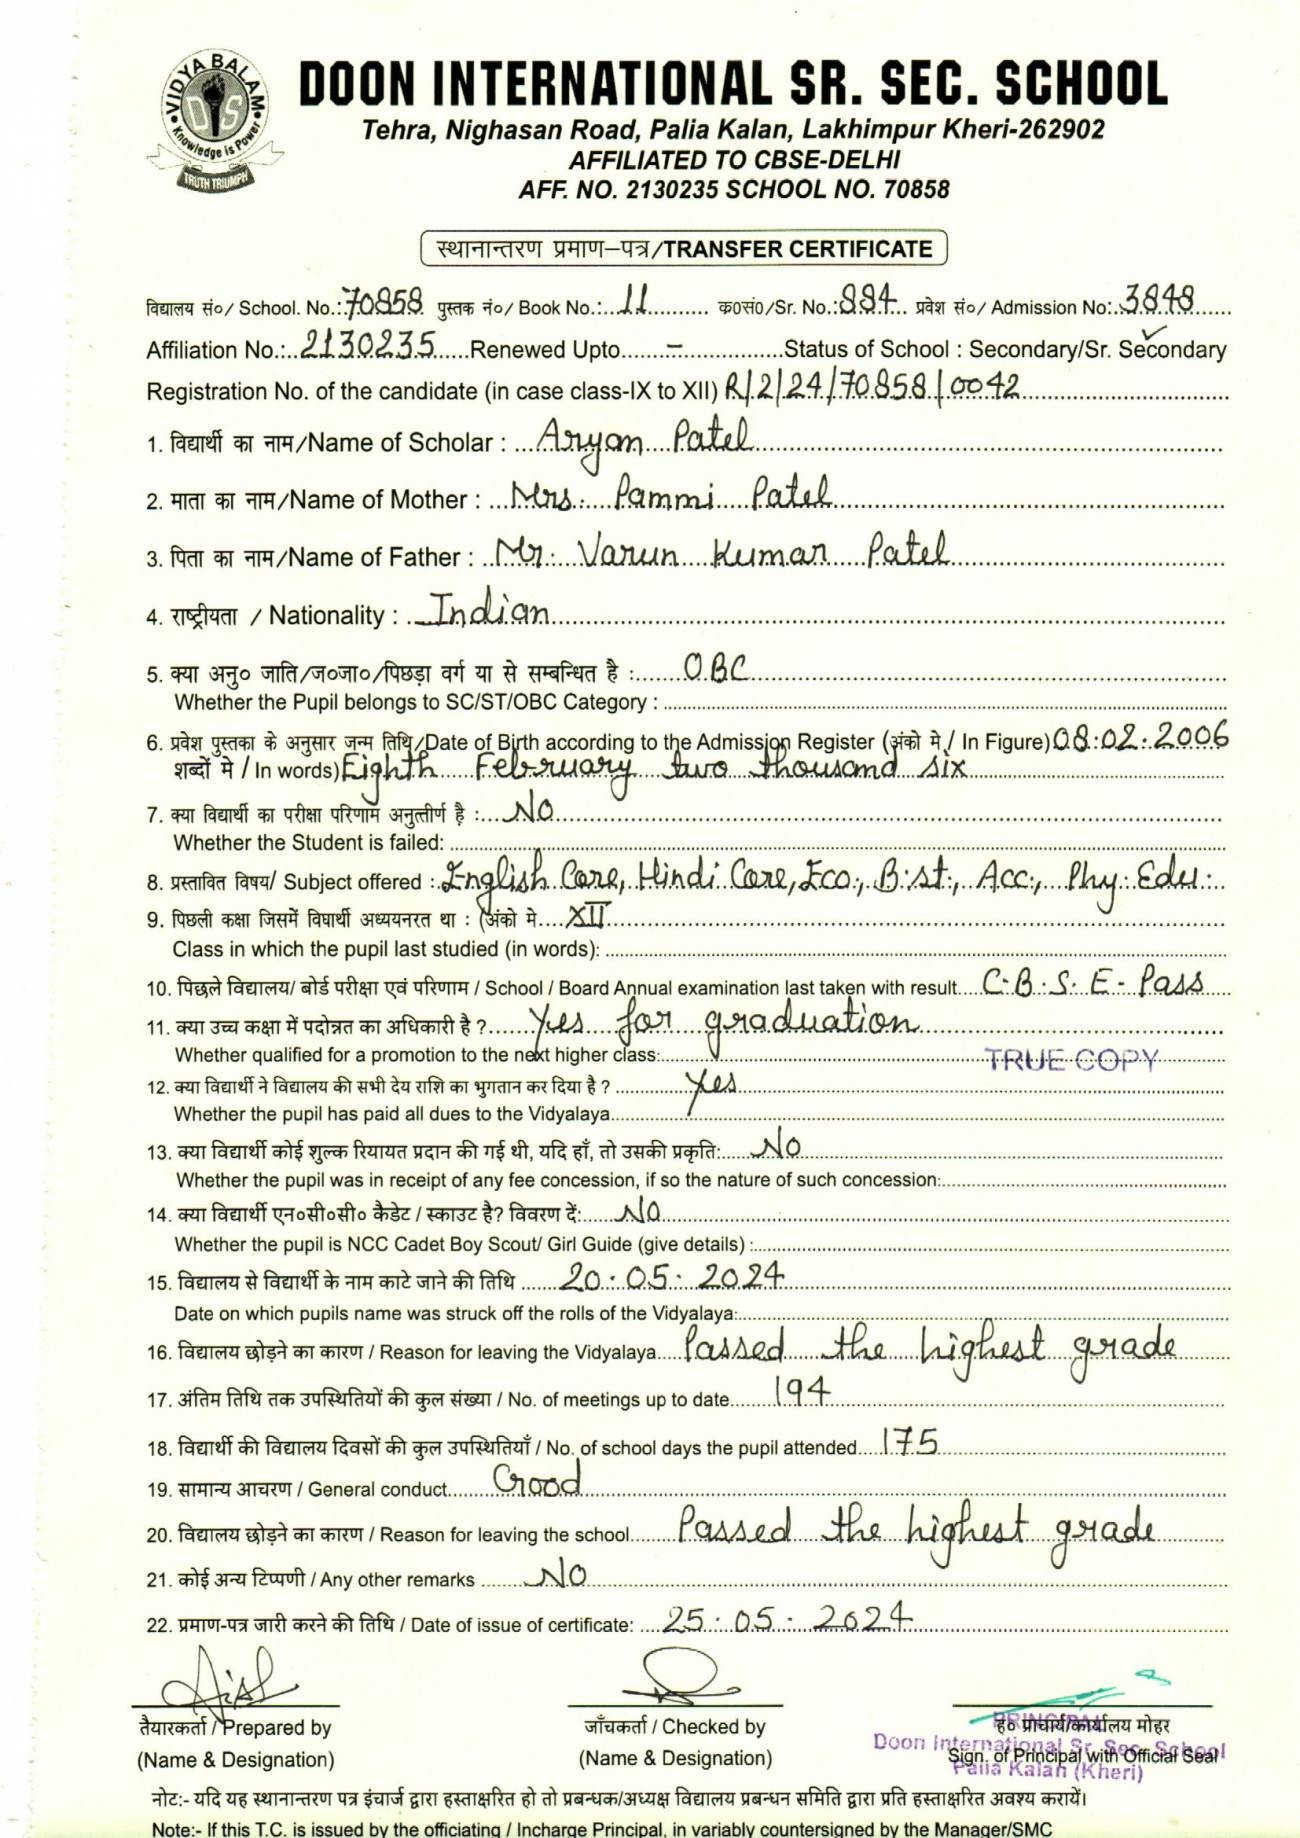 VIDYA BALAM
DIS
Knowledge is Power
TRUTH TRIUMPH
DOON INTERNATIONAL SR. SEC. SCHOOL
Tehra, Nighasan Road, Palia Kalan, Lakhimpur Kheri-262902
AFFILIATED TO CBSE-DELHI
AFF. NO. 2130235 SCHOOL NO. 70858
स्थानान्तरण प्रमाण–पत्र/TRANSFER CERTIFICATE
विद्यालय सं०/ School. No.: 70858 पुस्तक नं०/ Book No.: 11 क०सं०/Sr. No.: 884 प्रवेश सं०/ Admission No: 3848
Affiliation No.: 2130235 Renewed Upto – Status of School : Secondary/Sr. Secondary
Registration No. of the candidate (in case class-IX to XII) R/2/24/70858/0042
1. विद्यार्थी का नाम/Name of Scholar : Aryan Patel
2. माता का नाम/Name of Mother : Mrs. Pammi Patel
3. पिता का नाम/Name of Father : Mr. Varun Kumar Patel
4. राष्ट्रीयता / Nationality : Indian
5. क्या अनु० जाति/ज०जा०/पिछड़ा वर्ग या से सम्बन्धित है : OBC
Whether the Pupil belongs to SC/ST/OBC Category :
6. प्रवेश पुस्तका के अनुसार जन्म तिथि/Date of Birth according to the Admission Register (अंको मे / In Figure) 08.02.2006
शब्दों मे / In words) Eighth February two thousand six
7. क्या विद्यार्थी का परीक्षा परिणाम अनुत्तीर्ण है : NO
Whether the Student is failed:
8. प्रस्तावित विषय/ Subject offered : English Core, Hindi Core, Eco., B.st., Acc., Phy. Edu.
9. पिछली कक्षा जिसमें विघार्थी अध्ययनरत था : (अंको मे XII
Class in which the pupil last studied (in words):
10. पिछले विद्यालय/ बोर्ड परीक्षा एवं परिणाम / School / Board Annual examination last taken with result C.B.S.E - Pass
11. क्या उच्च कक्षा में पदोन्नत का अधिकारी है ? Yes for graduation
Whether qualified for a promotion to the next higher class:
TRUE COPY
12. क्या विद्यार्थी ने विद्यालय की सभी देय राशि का भुगतान कर दिया है ? Yes
Whether the pupil has paid all dues to the Vidyalaya
13. क्या विद्यार्थी कोई शुल्क रियायत प्रदान की गई थी, यदि हाँ, तो उसकी प्रकृति: NO
Whether the pupil was in receipt of any fee concession, if so the nature of such concession:
14. क्या विद्यार्थी एन०सी०सी० कैडेट / स्काउट है? विवरण दें: NO
Whether the pupil is NCC Cadet Boy Scout/ Girl Guide (give details) :
15. विद्यालय से विद्यार्थी के नाम काटे जाने की तिथि 20.05.2024
Date on which pupils name was struck off the rolls of the Vidyalaya:
16. विद्यालय छोड़ने का कारण / Reason for leaving the Vidyalaya Passed the highest grade
17. अंतिम तिथि तक उपस्थितियों की कुल संख्या / No. of meetings up to date 194
18. विद्यार्थी की विद्यालय दिवसों की कुल उपस्थितियाँ / No. of school days the pupil attended 175
19. सामान्य आचरण / General conduct Good
20. विद्यालय छोड़ने का कारण / Reason for leaving the school Passed the highest grade
21. कोई अन्य टिप्पणी / Any other remarks NO
22. प्रमाण-पत्र जारी करने की तिथि / Date of issue of certificate: 25.05.2024
तैयारकर्ता / Prepared by जाँचकर्ता / Checked by ह० प्राचार्य/कार्यालय मोहर
(Name & Designation) (Name & Designation) Sign. of Principal with Official Seal
PRINCIPAL
Doon International Sr. Sec. School
Palia Kalan (Kheri)
नोटः- यदि यह स्थानान्तरण पत्र इंचार्ज द्वारा हस्ताक्षरित हो तो प्रबन्धक/अध्यक्ष विद्यालय प्रबन्धन समिति द्वारा प्रति हस्ताक्षरित अवश्य करायें।
Note:- If this T.C. is issued by the officiating / Incharge Principal, in variably countersigned by the Manager/SMC